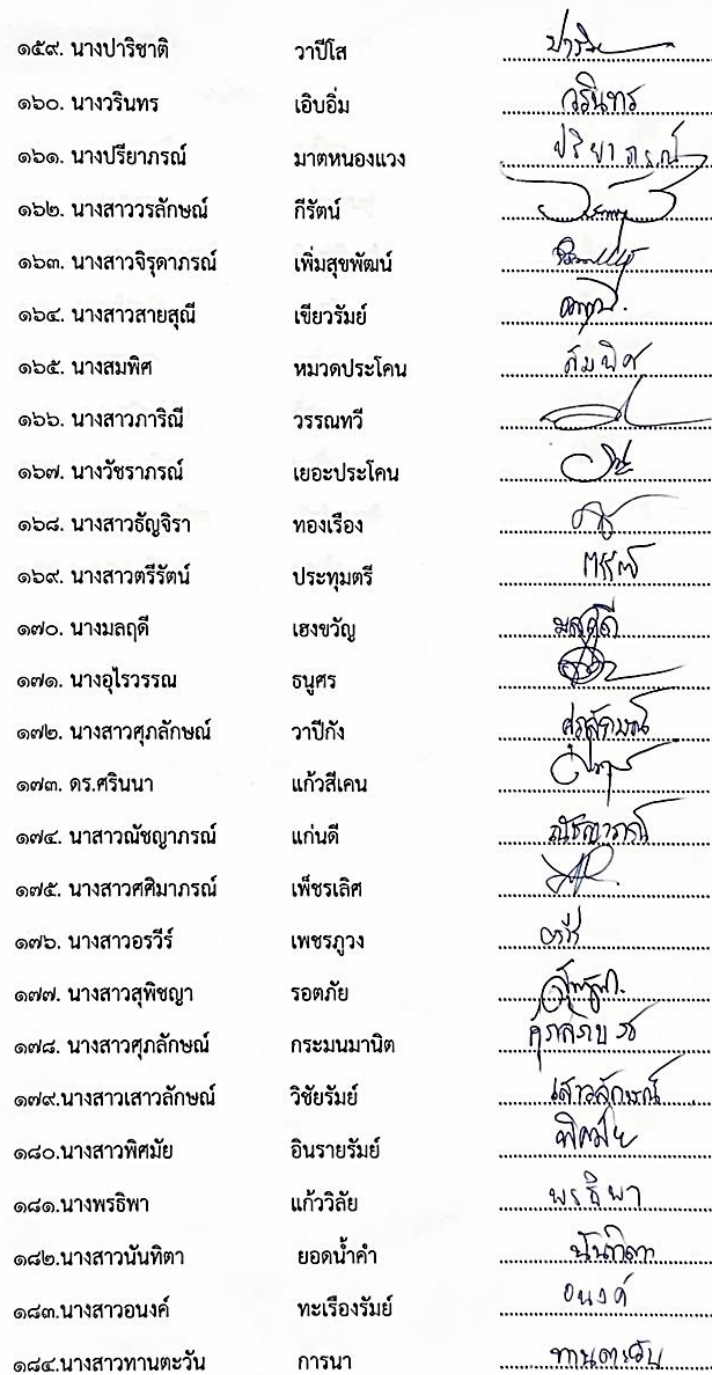 ๑๕๙. นางปาริชาติ วาปีโส ปาริ
๑๖๐. นางวรินทร เอิบอิ่ม วรินทร
๑๖๑. นางปรียาภรณ์ มาตหนองแวง ปริยาภรณ์
๑๖๒. นางสาววรลักษณ์ กีรัตน์
๑๖๓. นางสาวจิรุดาภรณ์ เพิ่มสุขพัฒน์
๑๖๔. นางสาวสายสุณี เขียวรัมย์
๑๖๕. นางสมพิศ หมวดประโคน สมพิศ
๑๖๖. นางสาวภาริณี วรรณทวี
๑๖๗. นางวัชราภรณ์ เยอะประโคน
๑๖๘. นางสาวธัญจิรา ทองเรือง
๑๖๙. นางสาวตรีรัตน์ ประทุมตรี
๑๗๐. นางมลฤดี เฮงขวัญ มลฤดี
๑๗๑. นางอุไรวรรณ ธนูศร
๑๗๒. นางสาวศุภลักษณ์ วาปีกัง ศุภลักษณ์
๑๗๓. ดร.ศรินนา แก้วสีเคน
๑๗๔. นาสาวณัชญาภรณ์ แก่นดี ณัชญาภรณ์
๑๗๕. นางสาวศศิมาภรณ์ เพ็ชรเลิศ
๑๗๖. นางสาวอรวีร์ เพชรภูวง อรวีร์
๑๗๗. นางสาวสุพิชญา รอตภัย
๑๗๘. นางสาวศุภลักษณ์ กระมนมานิต
๑๗๙.นางสาวเสาวลักษณ์ วิชัยรัมย์ เสาวลักษณ์
๑๘๐.นางสาวพิศมัย อินรายรัมย์ พิศมัย
๑๘๑.นางพรธิพา แก้ววิลัย พรธิพา
๑๘๒.นางสาวนันทิตา ยอดน้ำคำ นันทิตา
๑๘๓.นางสาวอนงค์ ทะเรืองรัมย์ อนงค์
๑๘๔.นางสาวทานตะวัน การนา ทานตะวัน